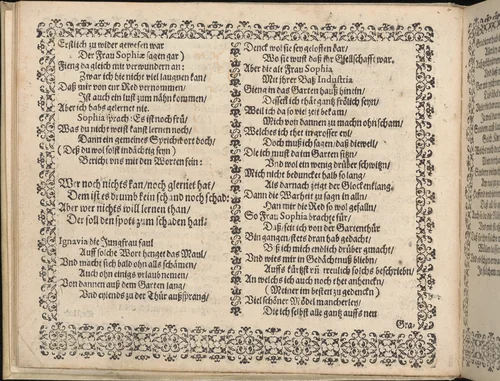 Erstlich zu wider gewesen war
Der Frau Sophiæ sagen gar)
Fieng da gleich mit verwundern an:
Zwar ich hie nicht viel laugnen kan/
Daß mir von eur Red vernommen/
Ist auch ein lust zum nähn kommen/
Aber ich habs gelernet nit.
Sophia sprach: Es ist noch früh/
Was du nicht weist kanst lernen noch/
Dann ein gemeines Sprichwort doch/
(Deß du wol solst indächtig seyn)
Bericht uns mit den Worten fein:
Wer noch nichts kan/noch glernet hat/
Dem ist es drumb kein schand noch schad:
Aber wer nichts will lernen than/
Der soll den spott zum schaden han.
Ignavia die Jungfrau faul
Auff solche Wort henget das Maul/
Und macht sich bald ohn alls schämen/
Auch ohn einigs urlaub nemen/
Von dannen auß dem Garten lang/
Und eylends zu der Thür außsprang/
Denckt wol sie sey geloffen dar/
Wo sie wust daß ihr Gsellschafft war.
Aber die alt Frau Sophia
Mit ihrer Bas Industria
Gieng in das Garten hauß hinein/
Desselt ich thät gantz frölich seyn/
Weil ich da so viel zeit bekam/
Mich von dannen zu machn ohn scham/
Welches ich thet in grosser eyl/
Doch muß ich sagen/daß dieweil/
Die ich must da im Garten sitzn/
Und wol ein wenig drüber schwitzn/
Mich nicht beduncket halb so lang/
Als darnach zeigt der Glocken klang.
Dann die Warheit zu sagn in alln/
Han mir die Red so wol gefalln/
So Frau Sophia brachte für/
Daß/ seit ich von der Gartenthür
Bin gangen/ stets dran hab gedacht/
Biß ich mich endlich drüber gmacht/
Und wies mir in Gedächtnuß bliebn/
Auffs kürtzst und treulich solchs beschriebn/
An welchs ich auch noch thet anhencken/
(Meiner im besten zu gedencken)
Viel schöner Mödel mancherley/
Die ich selbst alle gantz auffs neu
Gra-